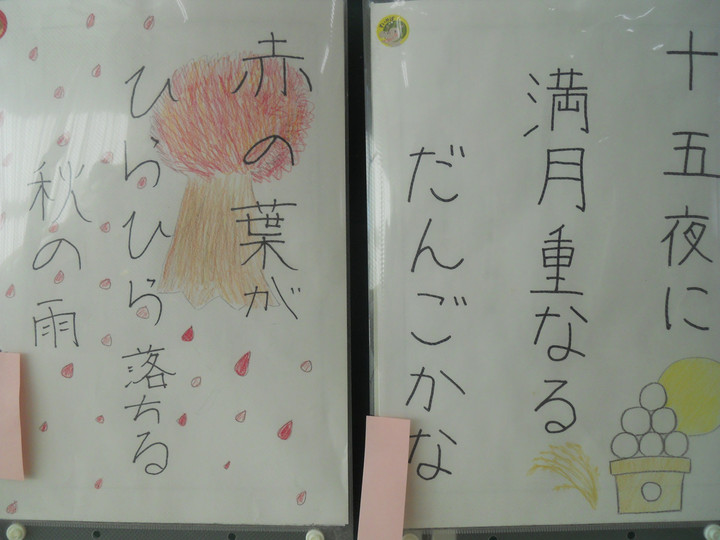 十五夜に
満月重なる
だんごかな
赤の葉が
ひらひら落ちる
秋の雨